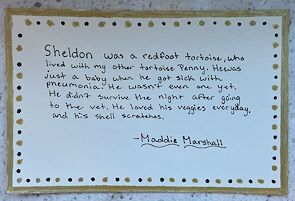 Sheldon was a redfoot tortoise, who
lived with my other tortoise Penny. He was
just a baby when he got sick with
pneumonia. He wasn't even one yet.
He didn't survive the night after going
to the vet. He loved his veggies everyday,
and his shell scratches.
-Maddie Marshall